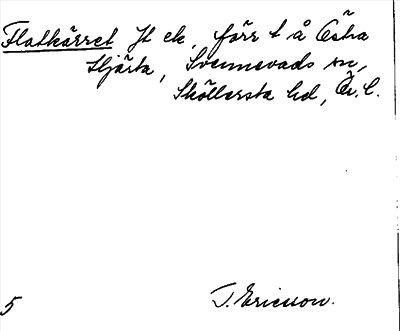 Flatkärret Jt ek, förr t å Östra
Hjärta, Svennevads sn,
Sköllersta hd, Ör. l.
5
J. Ericsson.